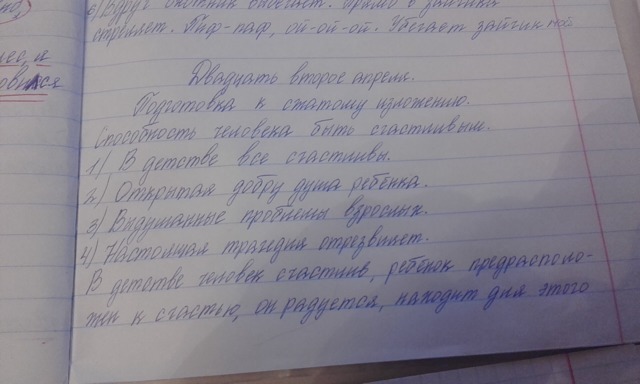 е) Вдруг охотник выбегает. Прямо в зайчика
стреляет. Пиф-паф, ой-ой-ой. Убегает зайчик мой.
Двадцать второе апреля.
Подготовка к сжатому изложению.
Способность человека быть счастливым.
1) В детстве все счастливы.
2) Открытая добру душа ребёнка.
3) Выдуманные проблемы взрослых.
4) Настоящая трагедия отрезвляет.
В детстве человек счастлив, ребёнок предрасполо-
жен к счастью, он радуется, находит для этого